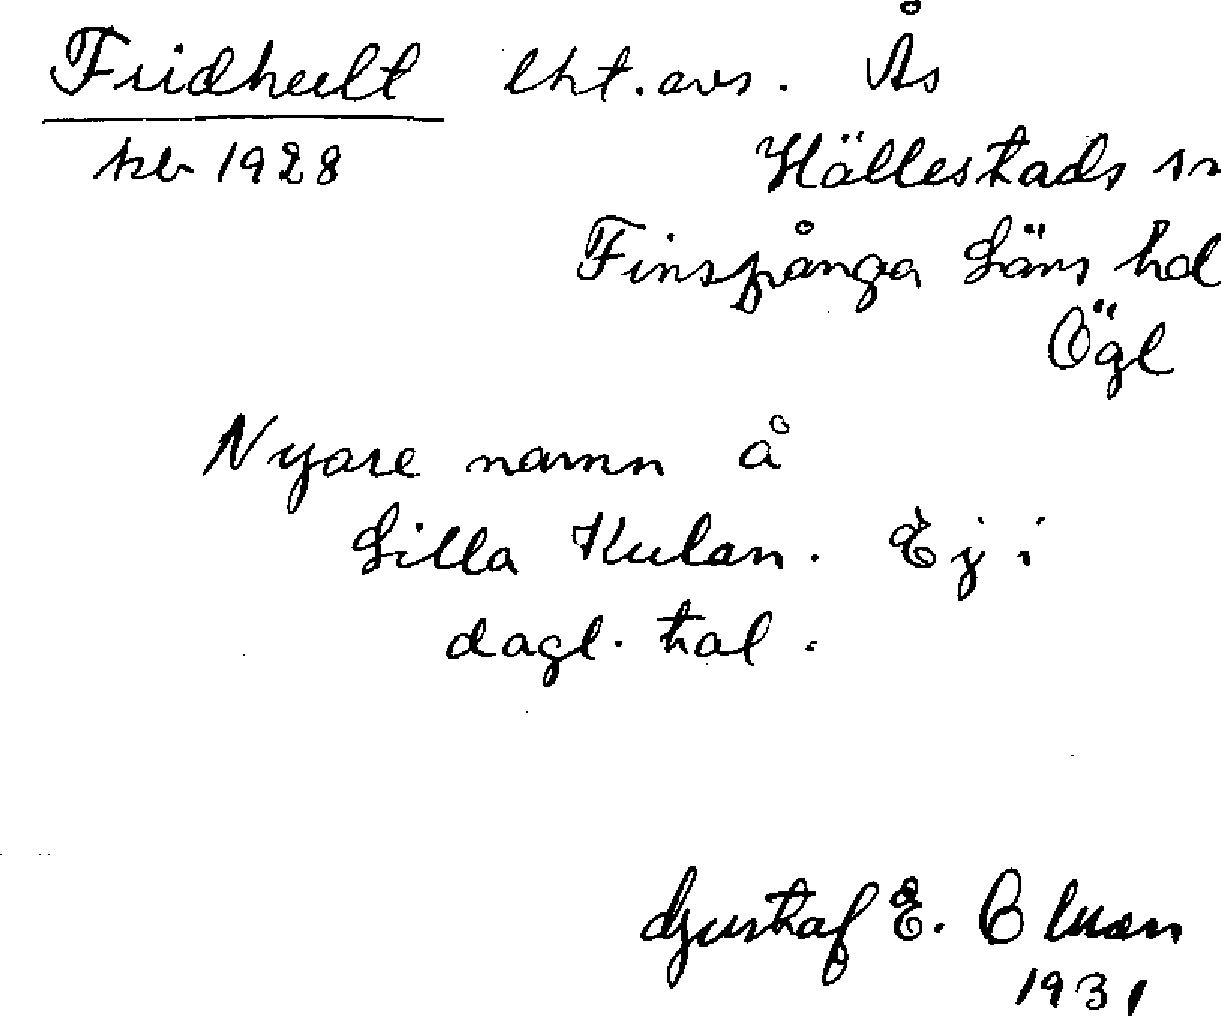 Fridhult lht.avs. Ås
kb 1928 Hällestads sn
Finspånga läns hd
Ögl
Nyare namn å
Lilla Kulan. Ej i
dagl. tal.
Gustaf E. Bluan
1931